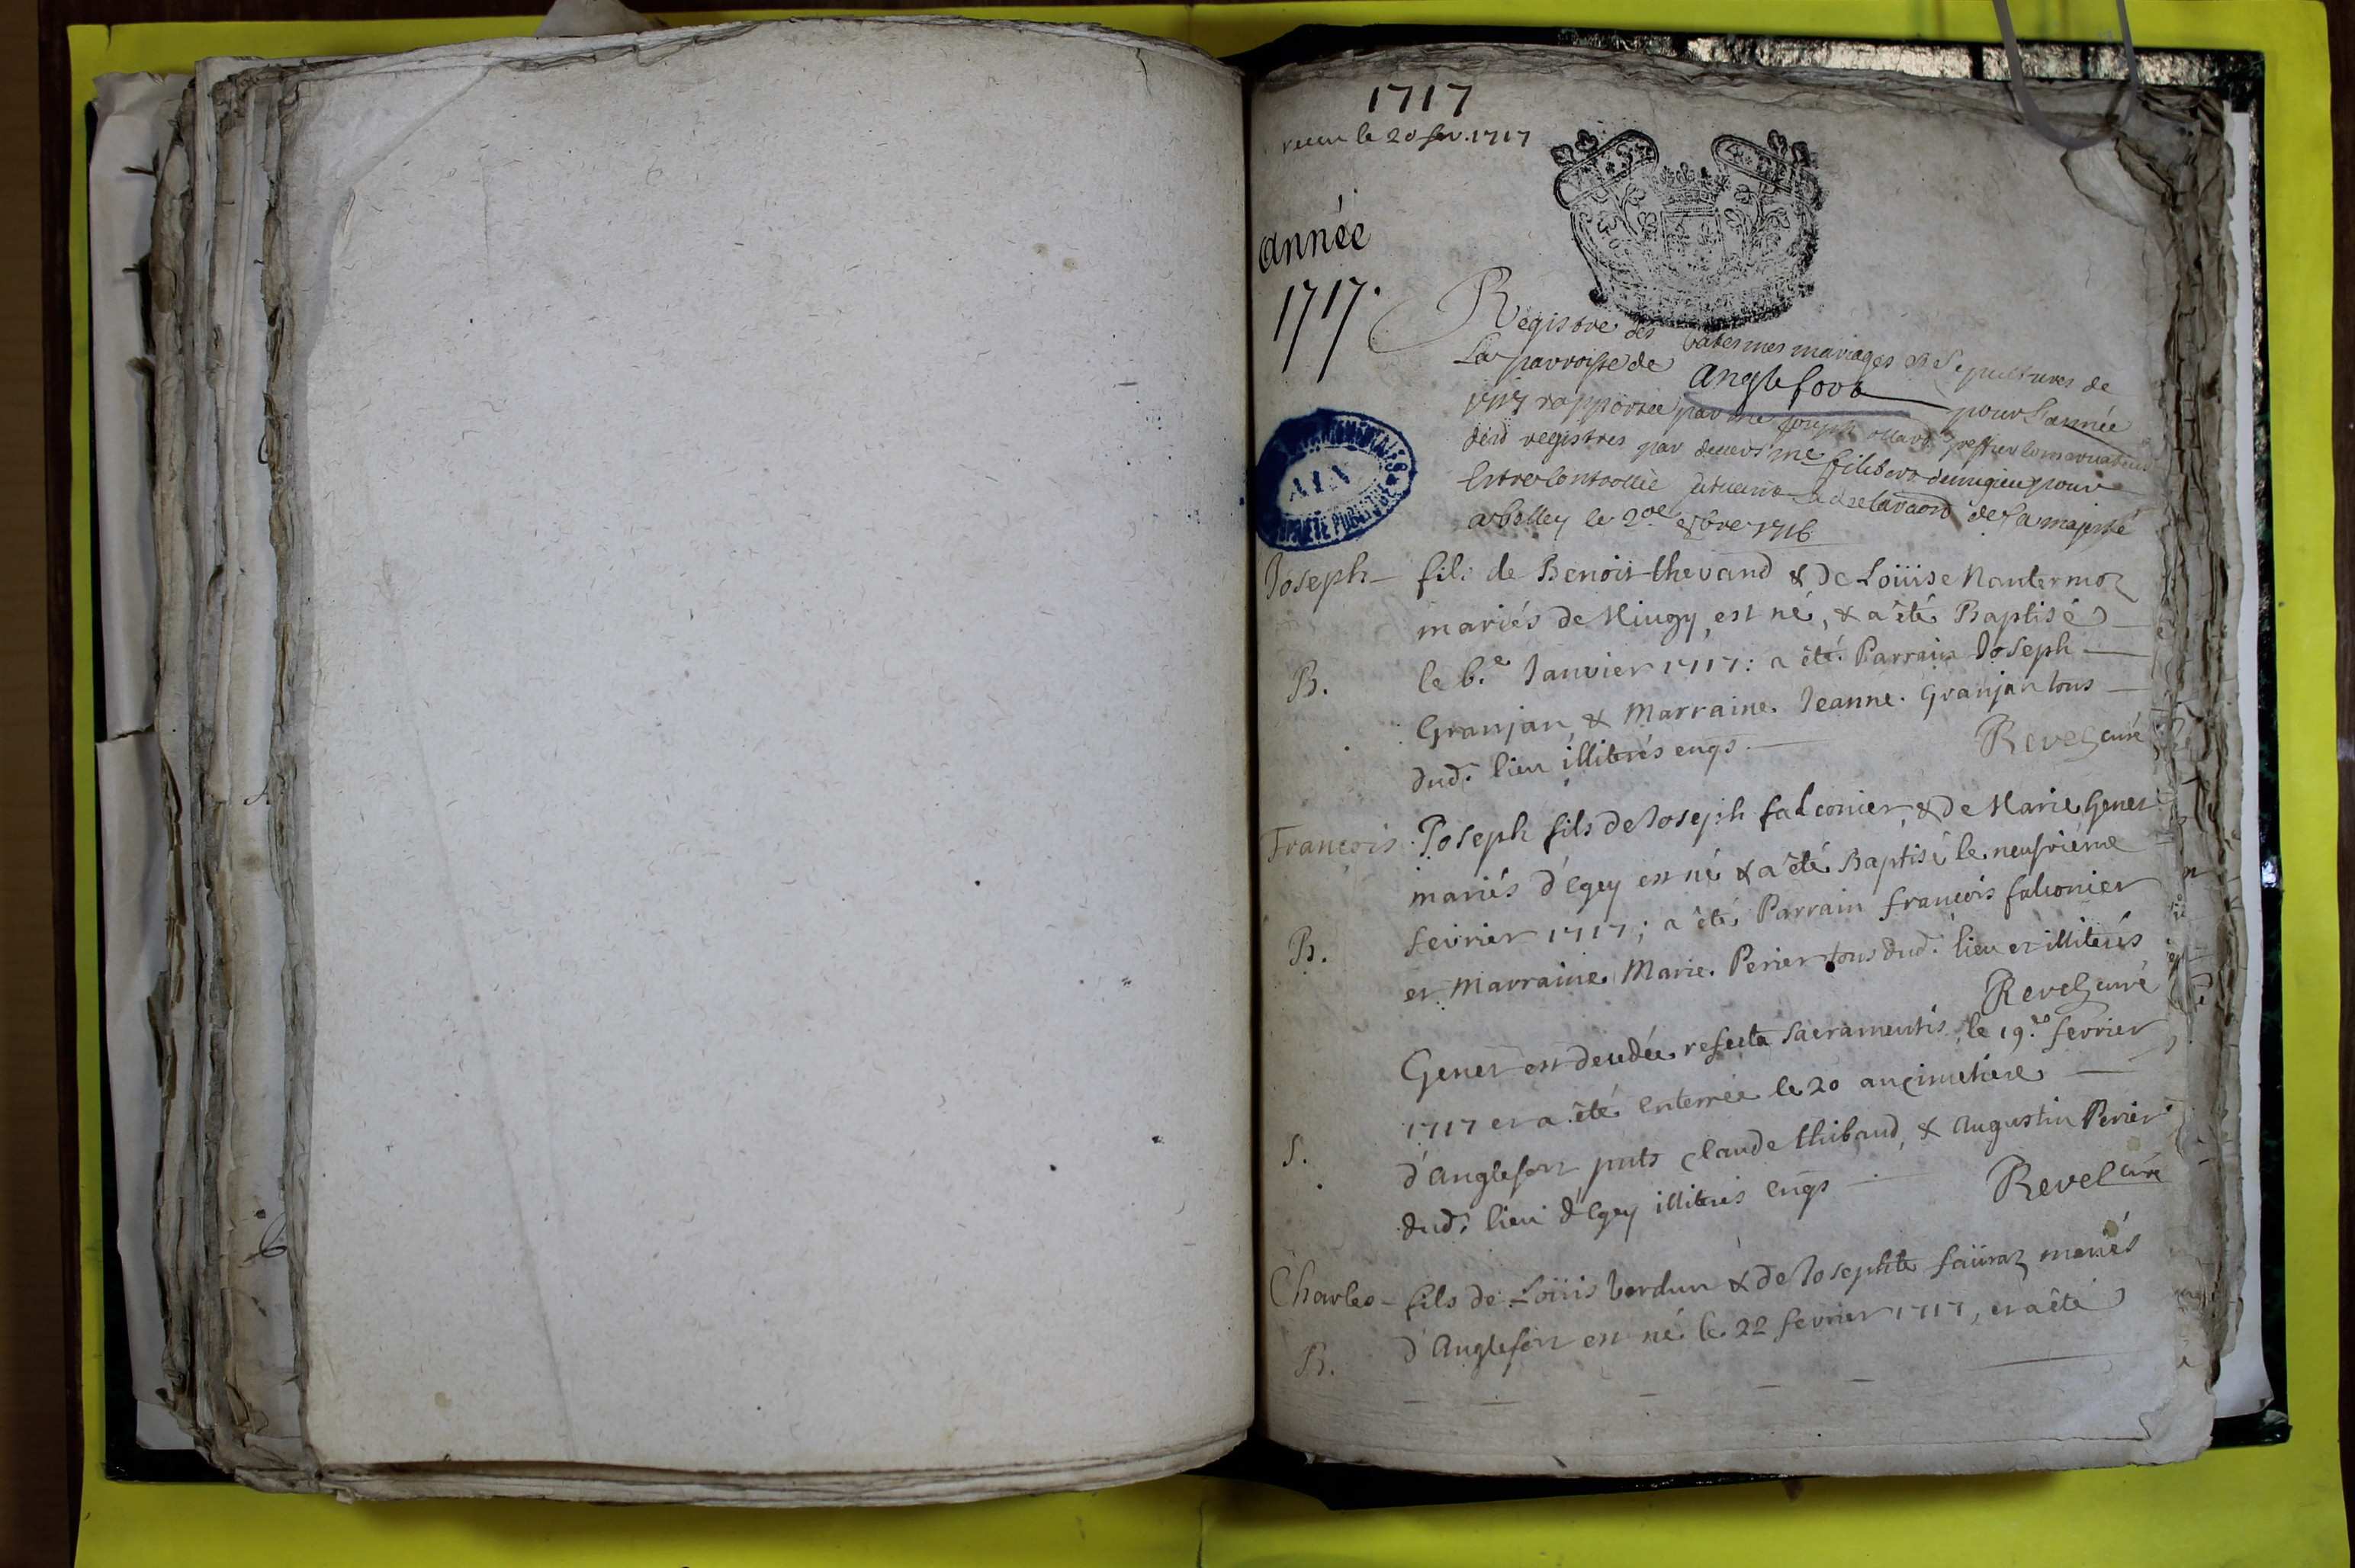 1717
receu le 20 fev. 1717
année
1717.
Registre des batesmes mariages et Sepultures de
La parroisse de Anglefort pour L'année
1717 rapportée par me Joseph
desd registres par devers me filibert dunugieu pour
Estre controollée de sa majesté
a belley le 20e xbre 1716
Joseph — fils de Benoit thevand & de Loüise Nantermoz
mariés de Miugy, est né, & a été Baptisé
B. le 6.e Janvier 1717: a été Parrain Joseph —
Granjan, & Marraine Jeanne Granjan tous —
dud. lieu illiterés enqs — Revel curé
François Joseph fils de Joseph falconier, & de Marie Genet
mariés d'Egey est né & a été Baptisé le neufvième
B. fevrier 1717; a été Parrain françois falconier
et Marraine Marie Perier tous dud. lieu et illiterés
Revel curé
Genet est decedée refecta Sacramentis, le 19.e fevrier
1717 et a été enterrée le 20 au çimetiere —
S. d'Anglefort pnts Claude thibaud, & Augustin Perier
dud. lieu d'Egey illiterés enqs — Revel curé
Charles — fils de Loüis Verdun & de Josephte faüraz mariés
B. d'Anglefort est né le 22 fevrier 1717, et a été
AIX